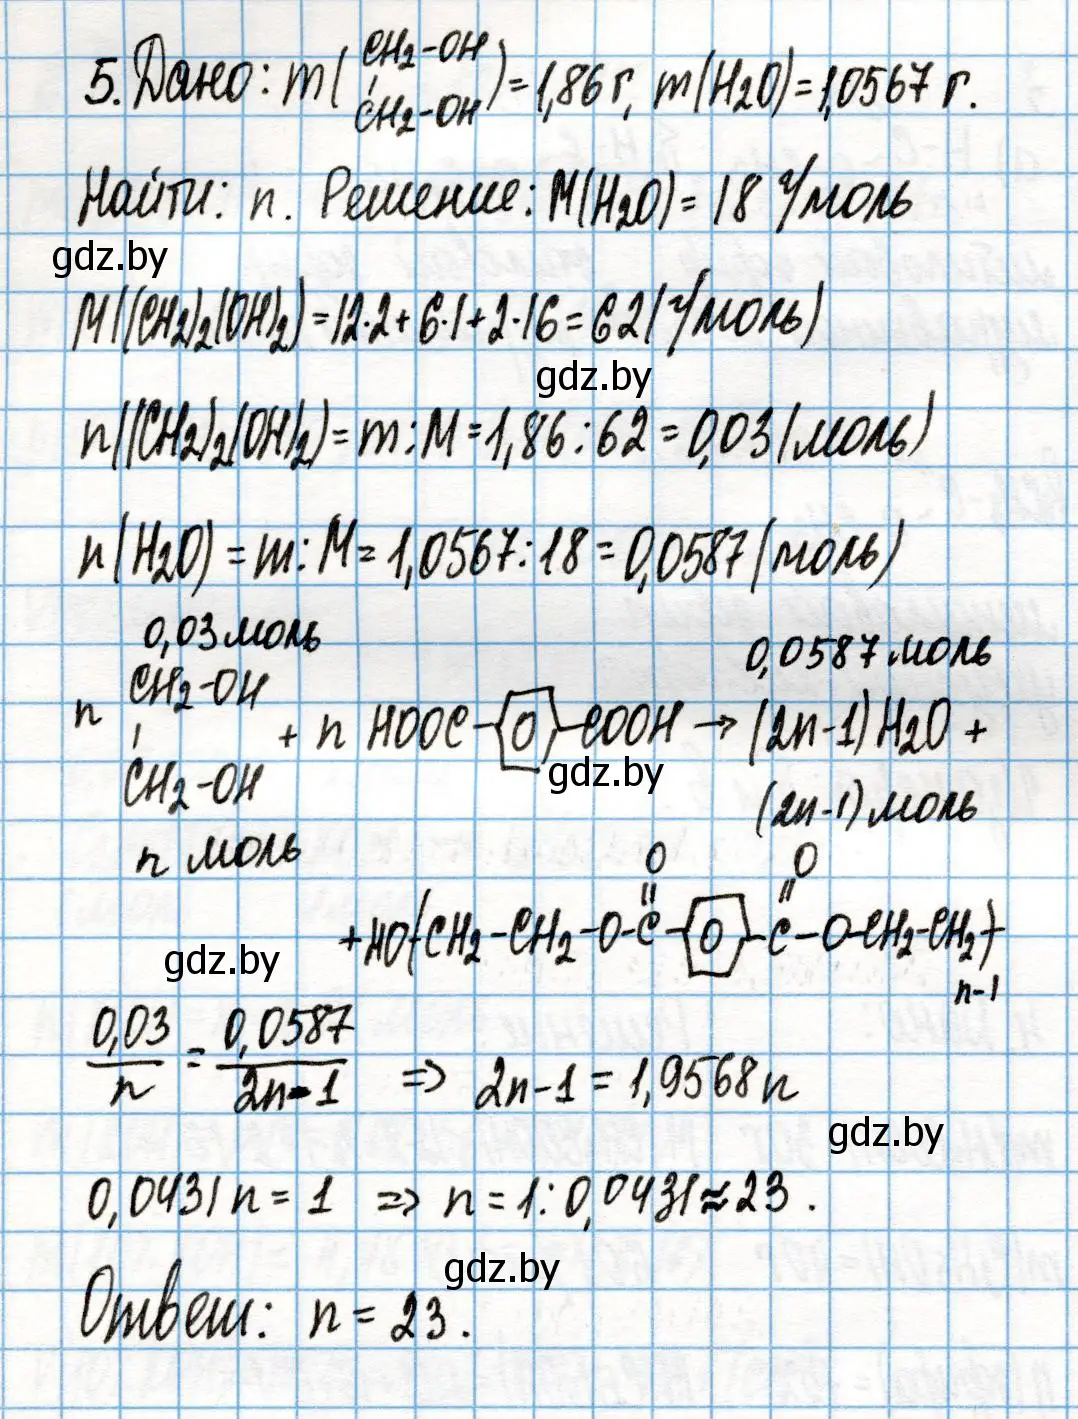 5. Дано: m( CH2-OH
CH2-OH ) = 1,86 г, m(H2O) = 1,0567 г.
Найти: n. Решение: M(H2O) = 18 г/моль
gdz.by
M((CH2)2(OH)2) = 12·2 + 6·1 + 2·16 = 62 (г/моль)
gdz.by
n((CH2)2(OH)2) = m : M = 1,86 : 62 = 0,03 (моль)
n(H2O) = m : M = 1,0567 : 18 = 0,0587 (моль)
0,03 моль 0,0587 моль
CH2-OH
n + n HOOC- -COOH → (2n-1) H2O +
CH2-OH gdz.by (2n-1) моль
n моль
O O
+ HO(CH2-CH2-O-C- -C-O-CH2-CH2)
gdz.by n-1
0,03/n = 0,0587/2n-1 => 2n-1 = 1,9568n
gdz.by
0,0431n = 1 => n = 1 : 0,0431 ≈ 23.
gdz.by
Ответ: n = 23.